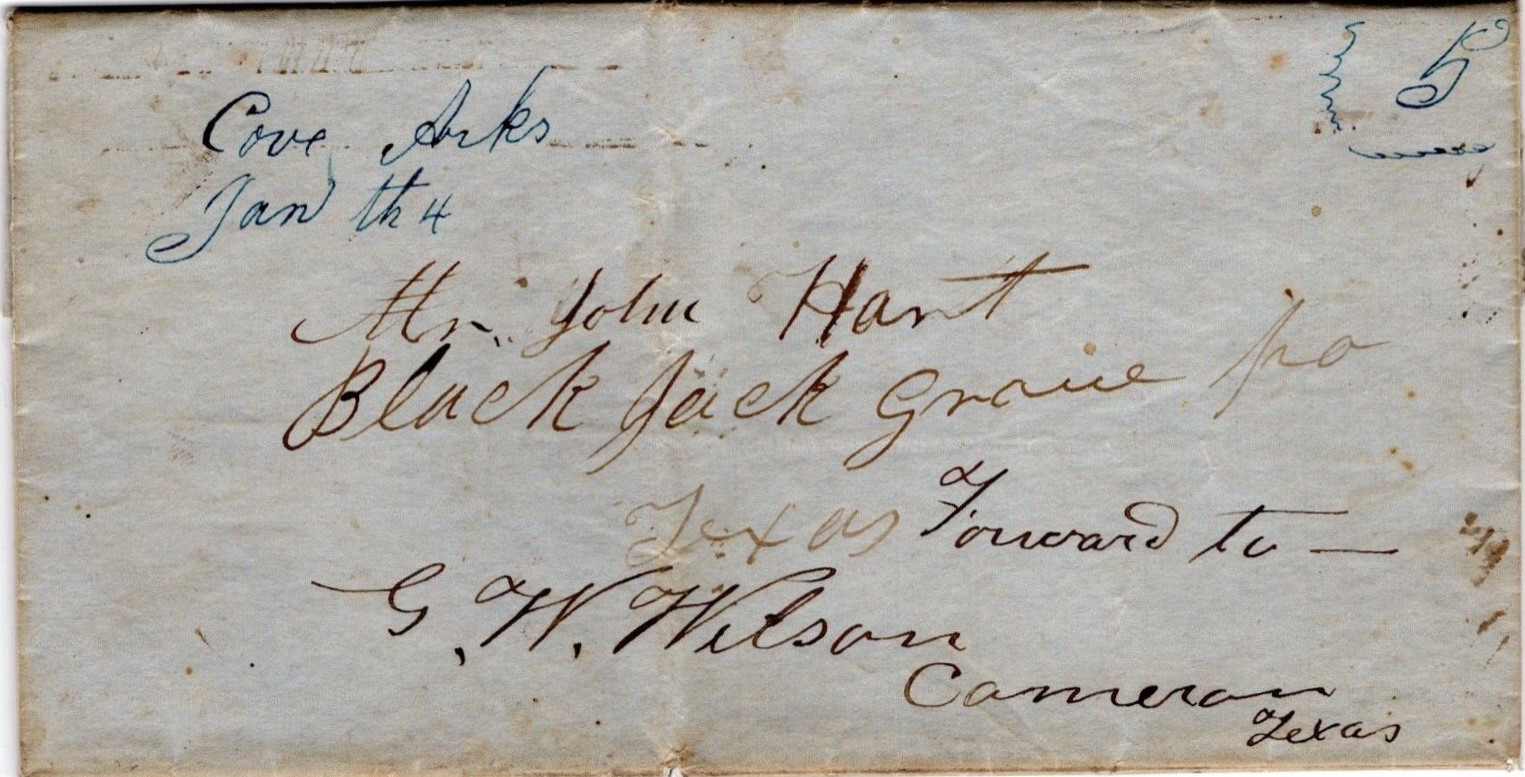 5
Cove Arks
Jand th 4
Mr. John Hart
Black Jack Grove po
Texas Forward to —
G. W. Wilson
Cameron
Texas